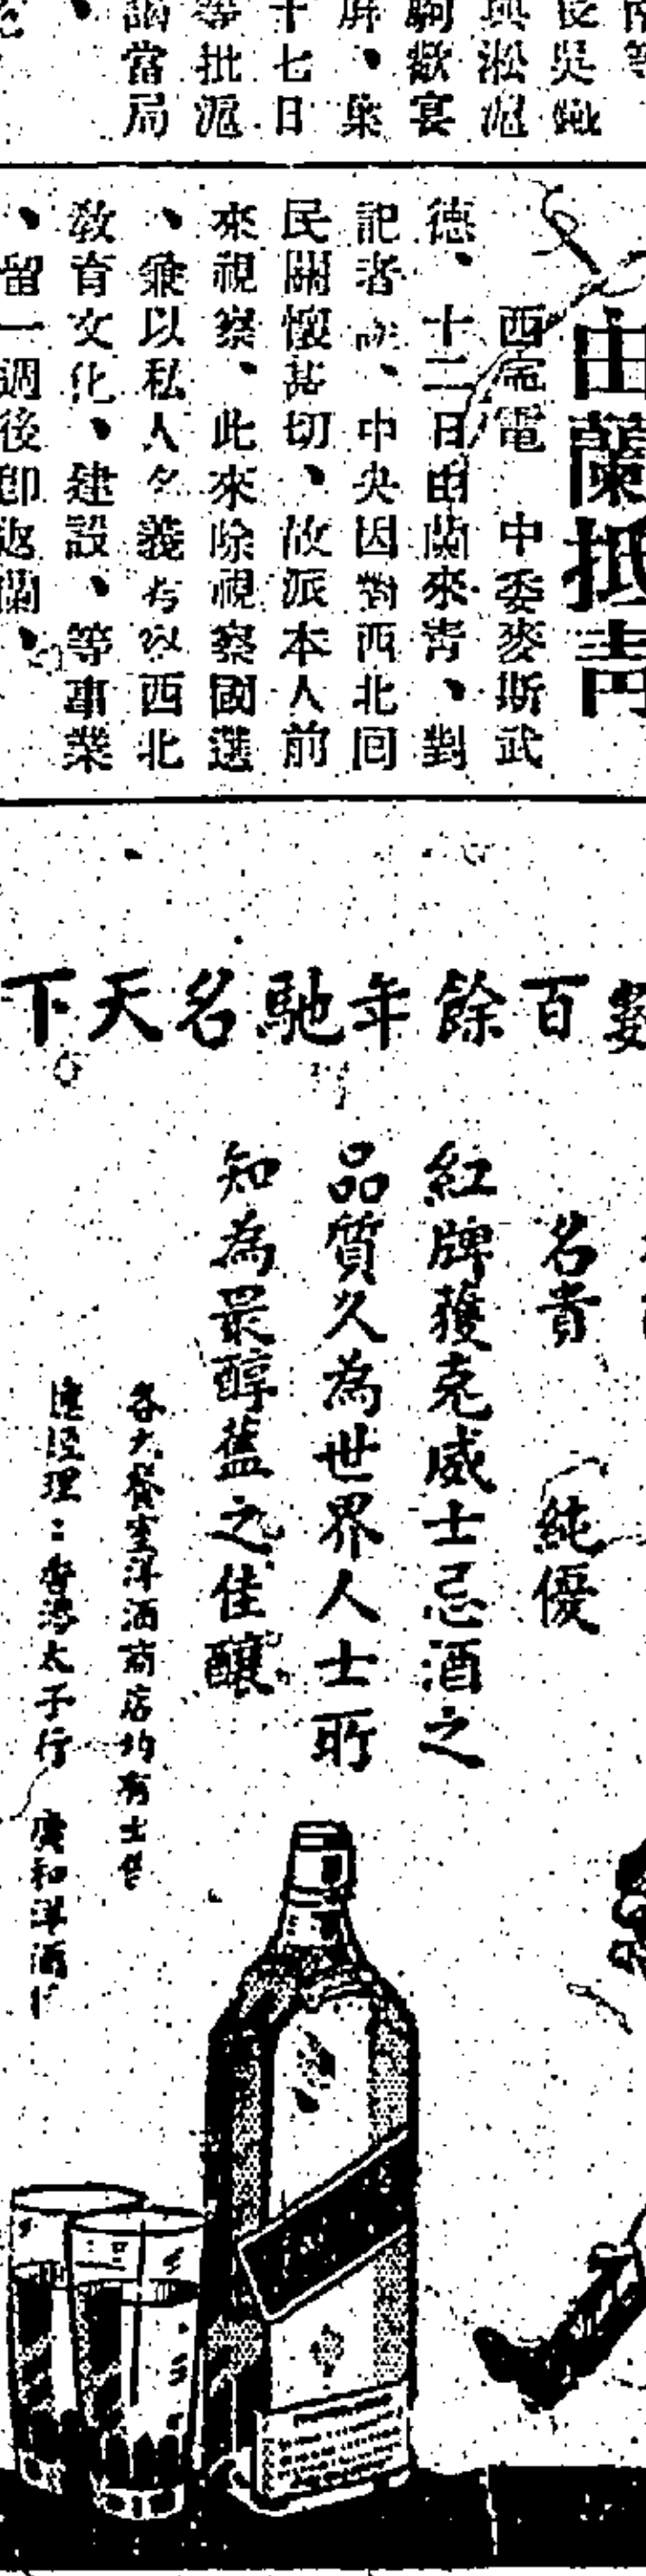 長吳鐵
與淞滬
駒歡宴
屏、集
十七日
等批滬
謁當局
由蘭抵青
西寧電　中委麥斯武
德、十二日由蘭來青、對
記者談、中央因對西北回
民關懷甚切、故派本人前
來視察、此來除視察國選
、兼以私人名義考察西北
教育文化、建設、等事業
、留一週後即返蘭、
數百餘年馳名天下
名貴　純優
紅牌獲克威士忌酒之
品質久為世界人士所
知為最醇舊之佳釀
各大餐室洋酒商店均有出售
總經理：香港太子行　廣和洋酒行